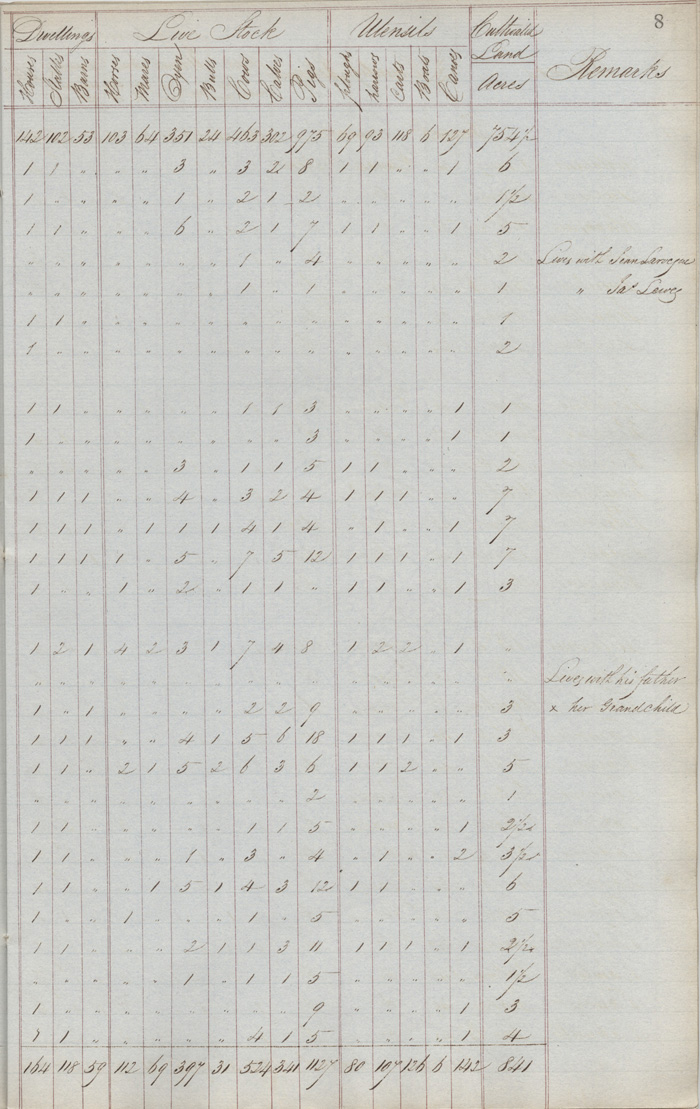 8
Dwellings Live Stock Utensils Cultivated Land Remarks
Houses Stables Barns Horses Mares Oxen Bulls Cows Calves Pigs ploughs harrows Carts Boats Canoes Acres
142 102 53 103 64 351 24 463 302 975 69 93 118 6 127 754½
1 1 " " " 3 " 3 2 8 1 1 " " 1 6
1 " " " " 1 " 2 1 2 " " " " " 1½
1 1 " " " 6 " 2 1 7 1 1 " " 1 5
" " " " " " " 1 " 4 " " " " " 2 Lives with Jean Larocque
" " " " " " " 1 " 1 " " " " " 1 " Jas
1 1 " " " " " " " " " " " " " 1
1 " " " " " " " " " " " " " " 2
1 1 " " " " " 1 1 3 " " " " 1 1
1 " " " " " " " " 3 " " " " 1 1
" " " " " 3 " 1 1 5 1 1 " " " 2
1 1 1 " " 4 " 3 2 4 1 1 1 " " 7
1 1 1 " 1 1 1 4 1 4 " 1 " " 1 7
1 1 1 1 " 5 " 7 5 12 1 1 1 " 1 7
1 " " 1 " 2 " 1 1 " 1 1 " " 1 3
1 2 1 4 2 3 1 7 4 8 1 2 2 " 1 "
" " " " " " " " " " " " " " " " Lives with his father
1 " 1 " " " " 2 2 9 " " " " " 3 x her Grandchild
1 1 1 " " 4 1 5 6 18 1 1 1 " 1 3
1 1 " 2 1 5 2 6 3 6 1 1 2 " " 5
" " " " " " " " " 2 " " " " " 1
1 1 " " " " " 1 1 5 " " " " 1 2½
1 1 " " " 1 " 3 " 4 " 1 " " 2 3½
1 1 " " 1 5 1 4 3 12 1 1 " " " 6
1 " " 1 " " " 1 " 5 " " " " " 5
1 1 " " " 2 1 1 3 11 1 1 1 " 1 2½
" " " " " 1 " 1 1 5 " " " " " 1½
1 " " " " " " " " 9 " " " " 1 3
1 1 " " " " " 4 1 5 " " " " 1 4
164 118 59 112 69 397 31 524 341 1127 80 107 126 6 142 841